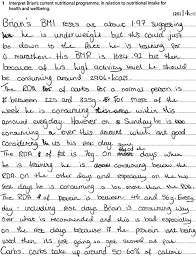 1 Interpret Brian's current nutritional programme, in relation to nutritional intake for
health and wellbeing.
Brian's BMI rests at about 19.7 suggesting
he is underweight but this could just
be down to the fact he is training for
a marathon. His BMR is 1882.92 but then
because of his high activity level he should
be consuming around 2906 kcals.
The RDA of carbs for a normal person is
between 225 and 325g. For most of the
week he is consuming within this
amount everyday. However on a Sunday he is
consuming over this amount which
considering he uses for
The RDA of fat is 70g. On days when
he is training he is consuming below the
RDA. On the other days and especially on the two
rest days he is consuming too more than the RDA.
The RDA of protein is between 46 and 56g. Every
day including rest days Brian is consuming way
over what is recommended and this is bad especially
on the rest days because if the protein isnt being
used then its just going to get stored as fat.
Carbs. Carbs take up around 50-60% of calorie